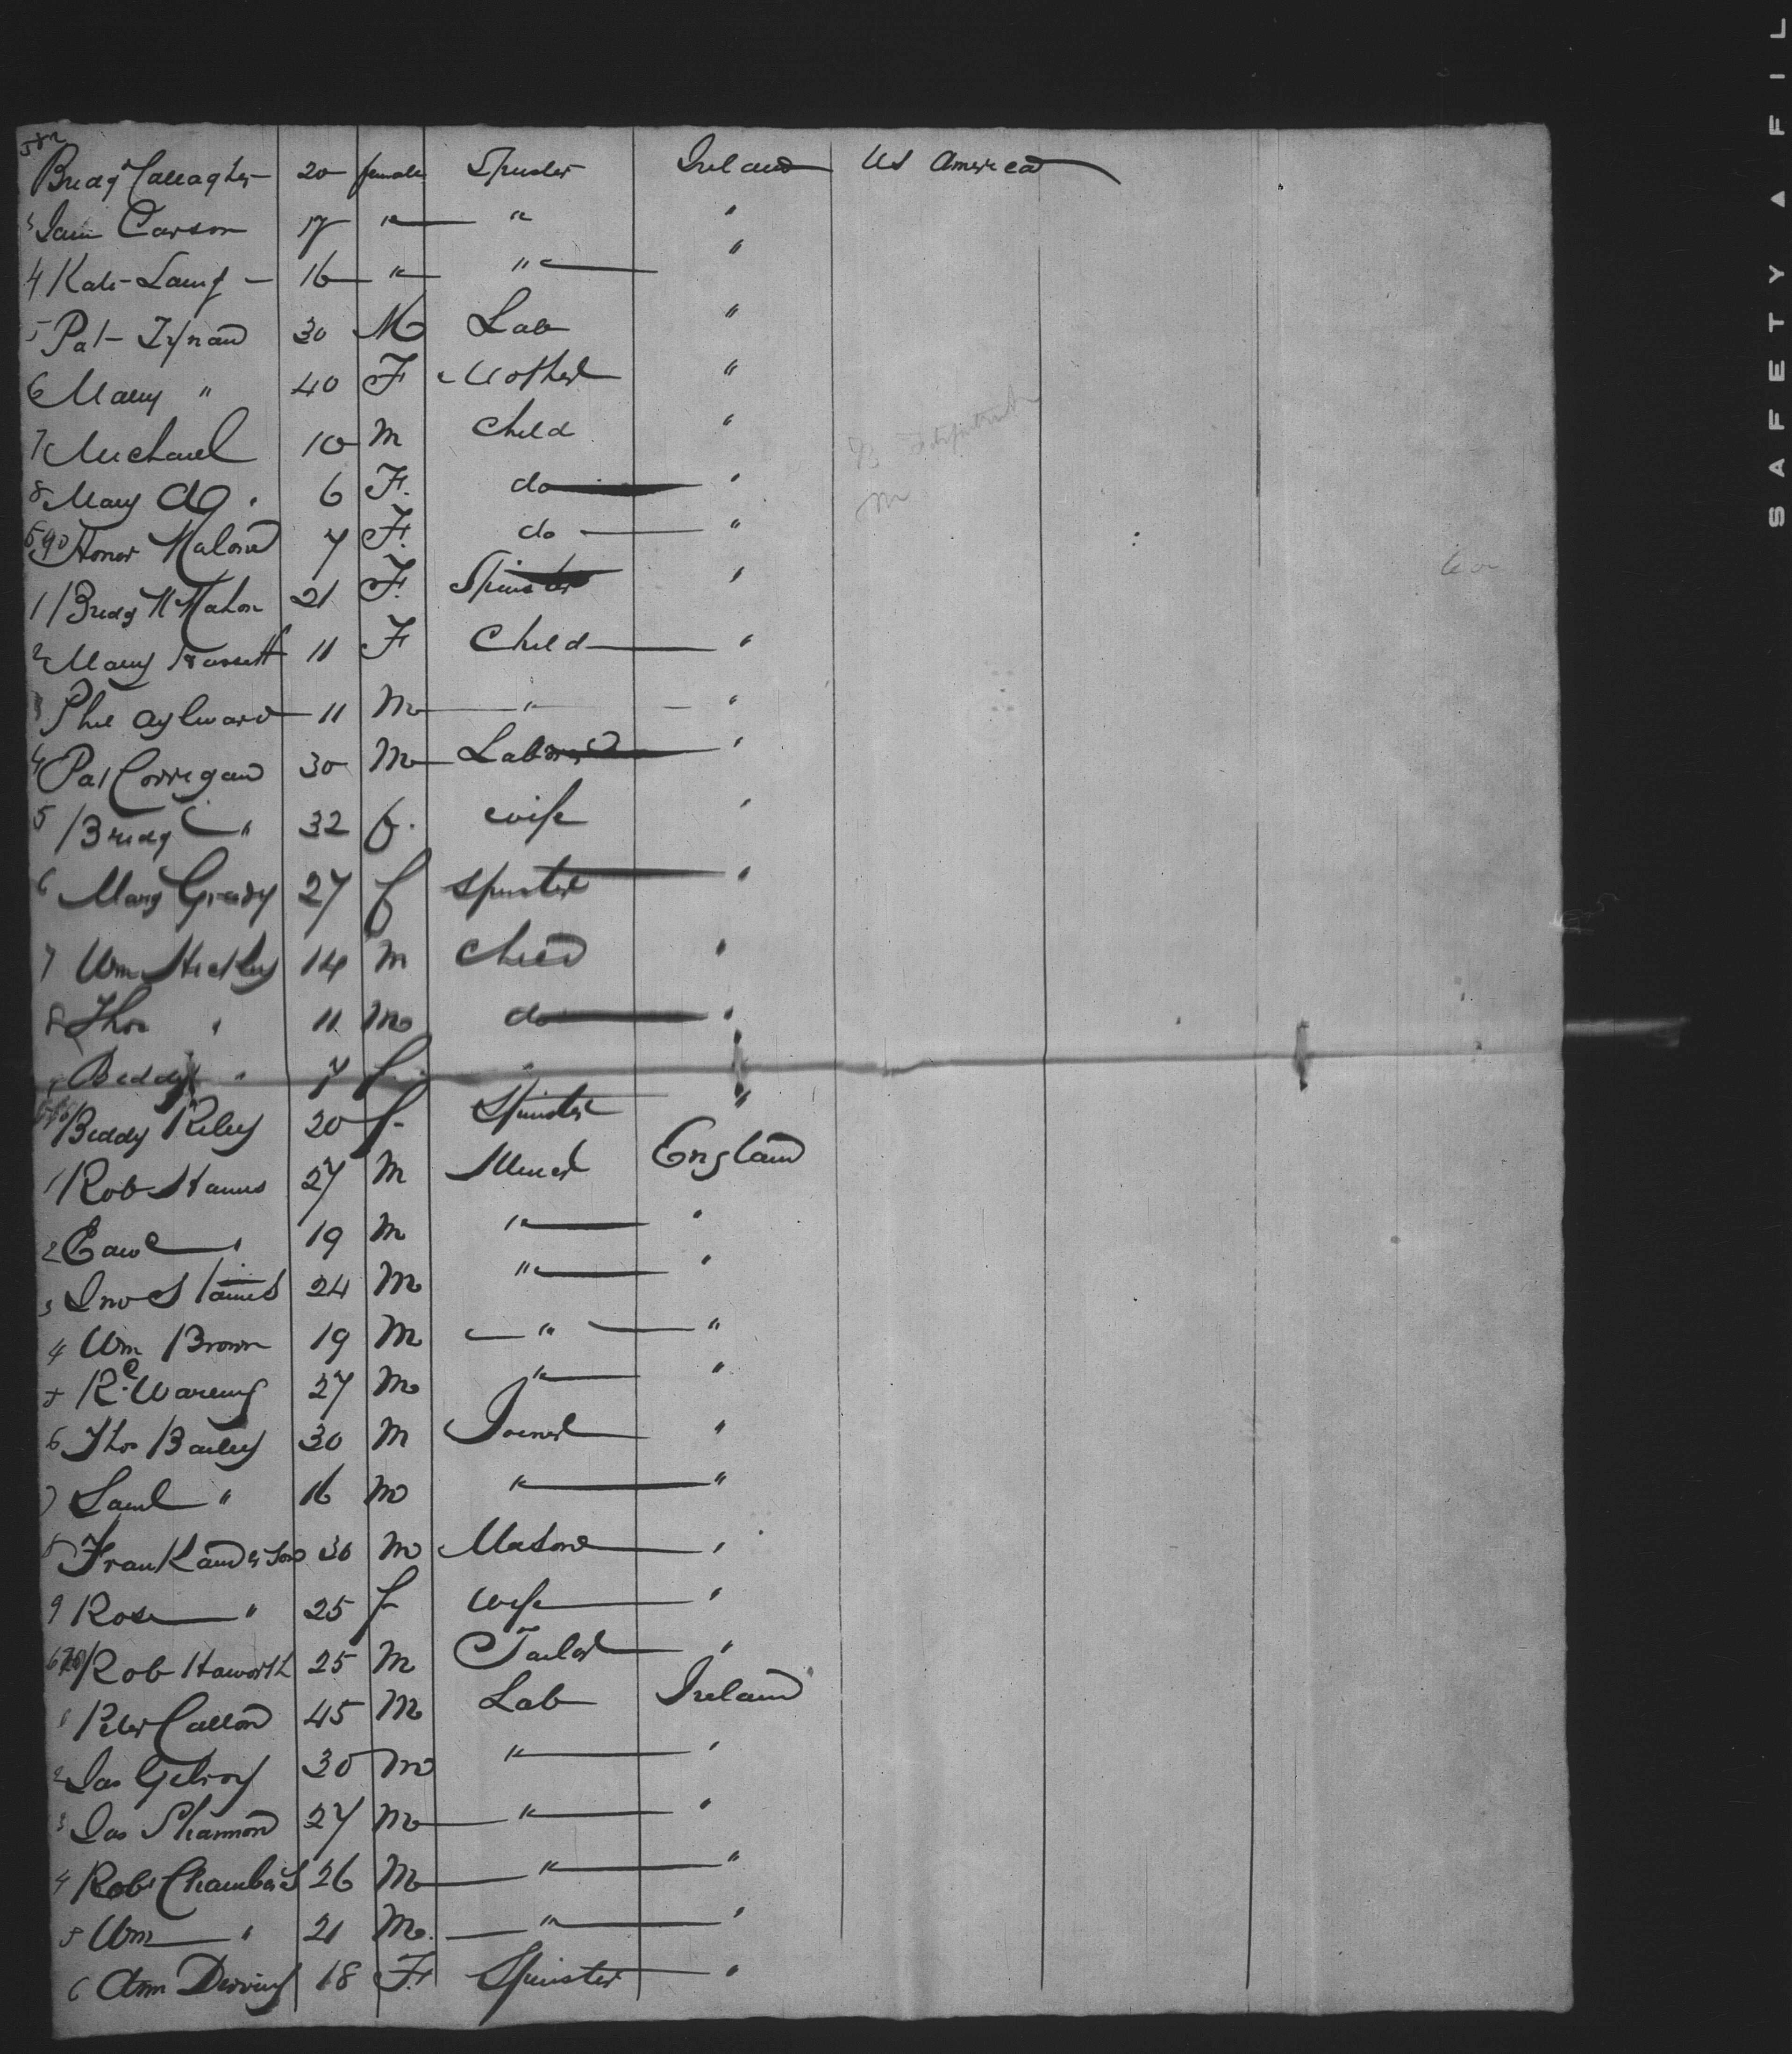 582 Bridg Callagher 20 female Spinster Ireland US America
3 Jane Carson 17 " " "
4 Kate Laing 16 " " "
5 Pat Tynan 30 M Lab "
6 Mary " 40 F Mother "
7 Michael 10 m Child "
8 Mary do " 6 F. do "
590 Honor Malone 7 F. do "
1 Bridg McMahon 21 F. Spinster "
2 Mary 11 F Child "
3 Phil Aylward 11 M " "
4 Pat Corrigan 30 M Laborer "
5 Bridg C " 32 f. wife "
6 Mary Grady 27 f Spinster "
7 Wm Hickey 14 m Child "
8 Thos " 11 m do "
9 Biddy " 7 f " "
Biddy Riley 20 f. Spinster "
1 Rob Hames 27 M Miner England
2 " 19 m " "
3 Jno 24 M " "
4 Wm Brown 19 M " "
5 Rd Wareing 27 M " "
6 Thos Bailey 30 M Joiner "
7 Saml " 16 m " "
8 Frank Anderson 30 m Mason "
9 Rose " 25 f Wife "
Rob Haworth 25 M Tailor "
1 Peter Callon 45 M Lab Ireland
2 Jas Gilroy 30 m " "
3 Jas Shannon 27 M " "
4 Robt Chambers 26 M " "
5 Wm " 21 M. " "
6 Ann 18 F. Spinster "
SAFETY ▲ FIL